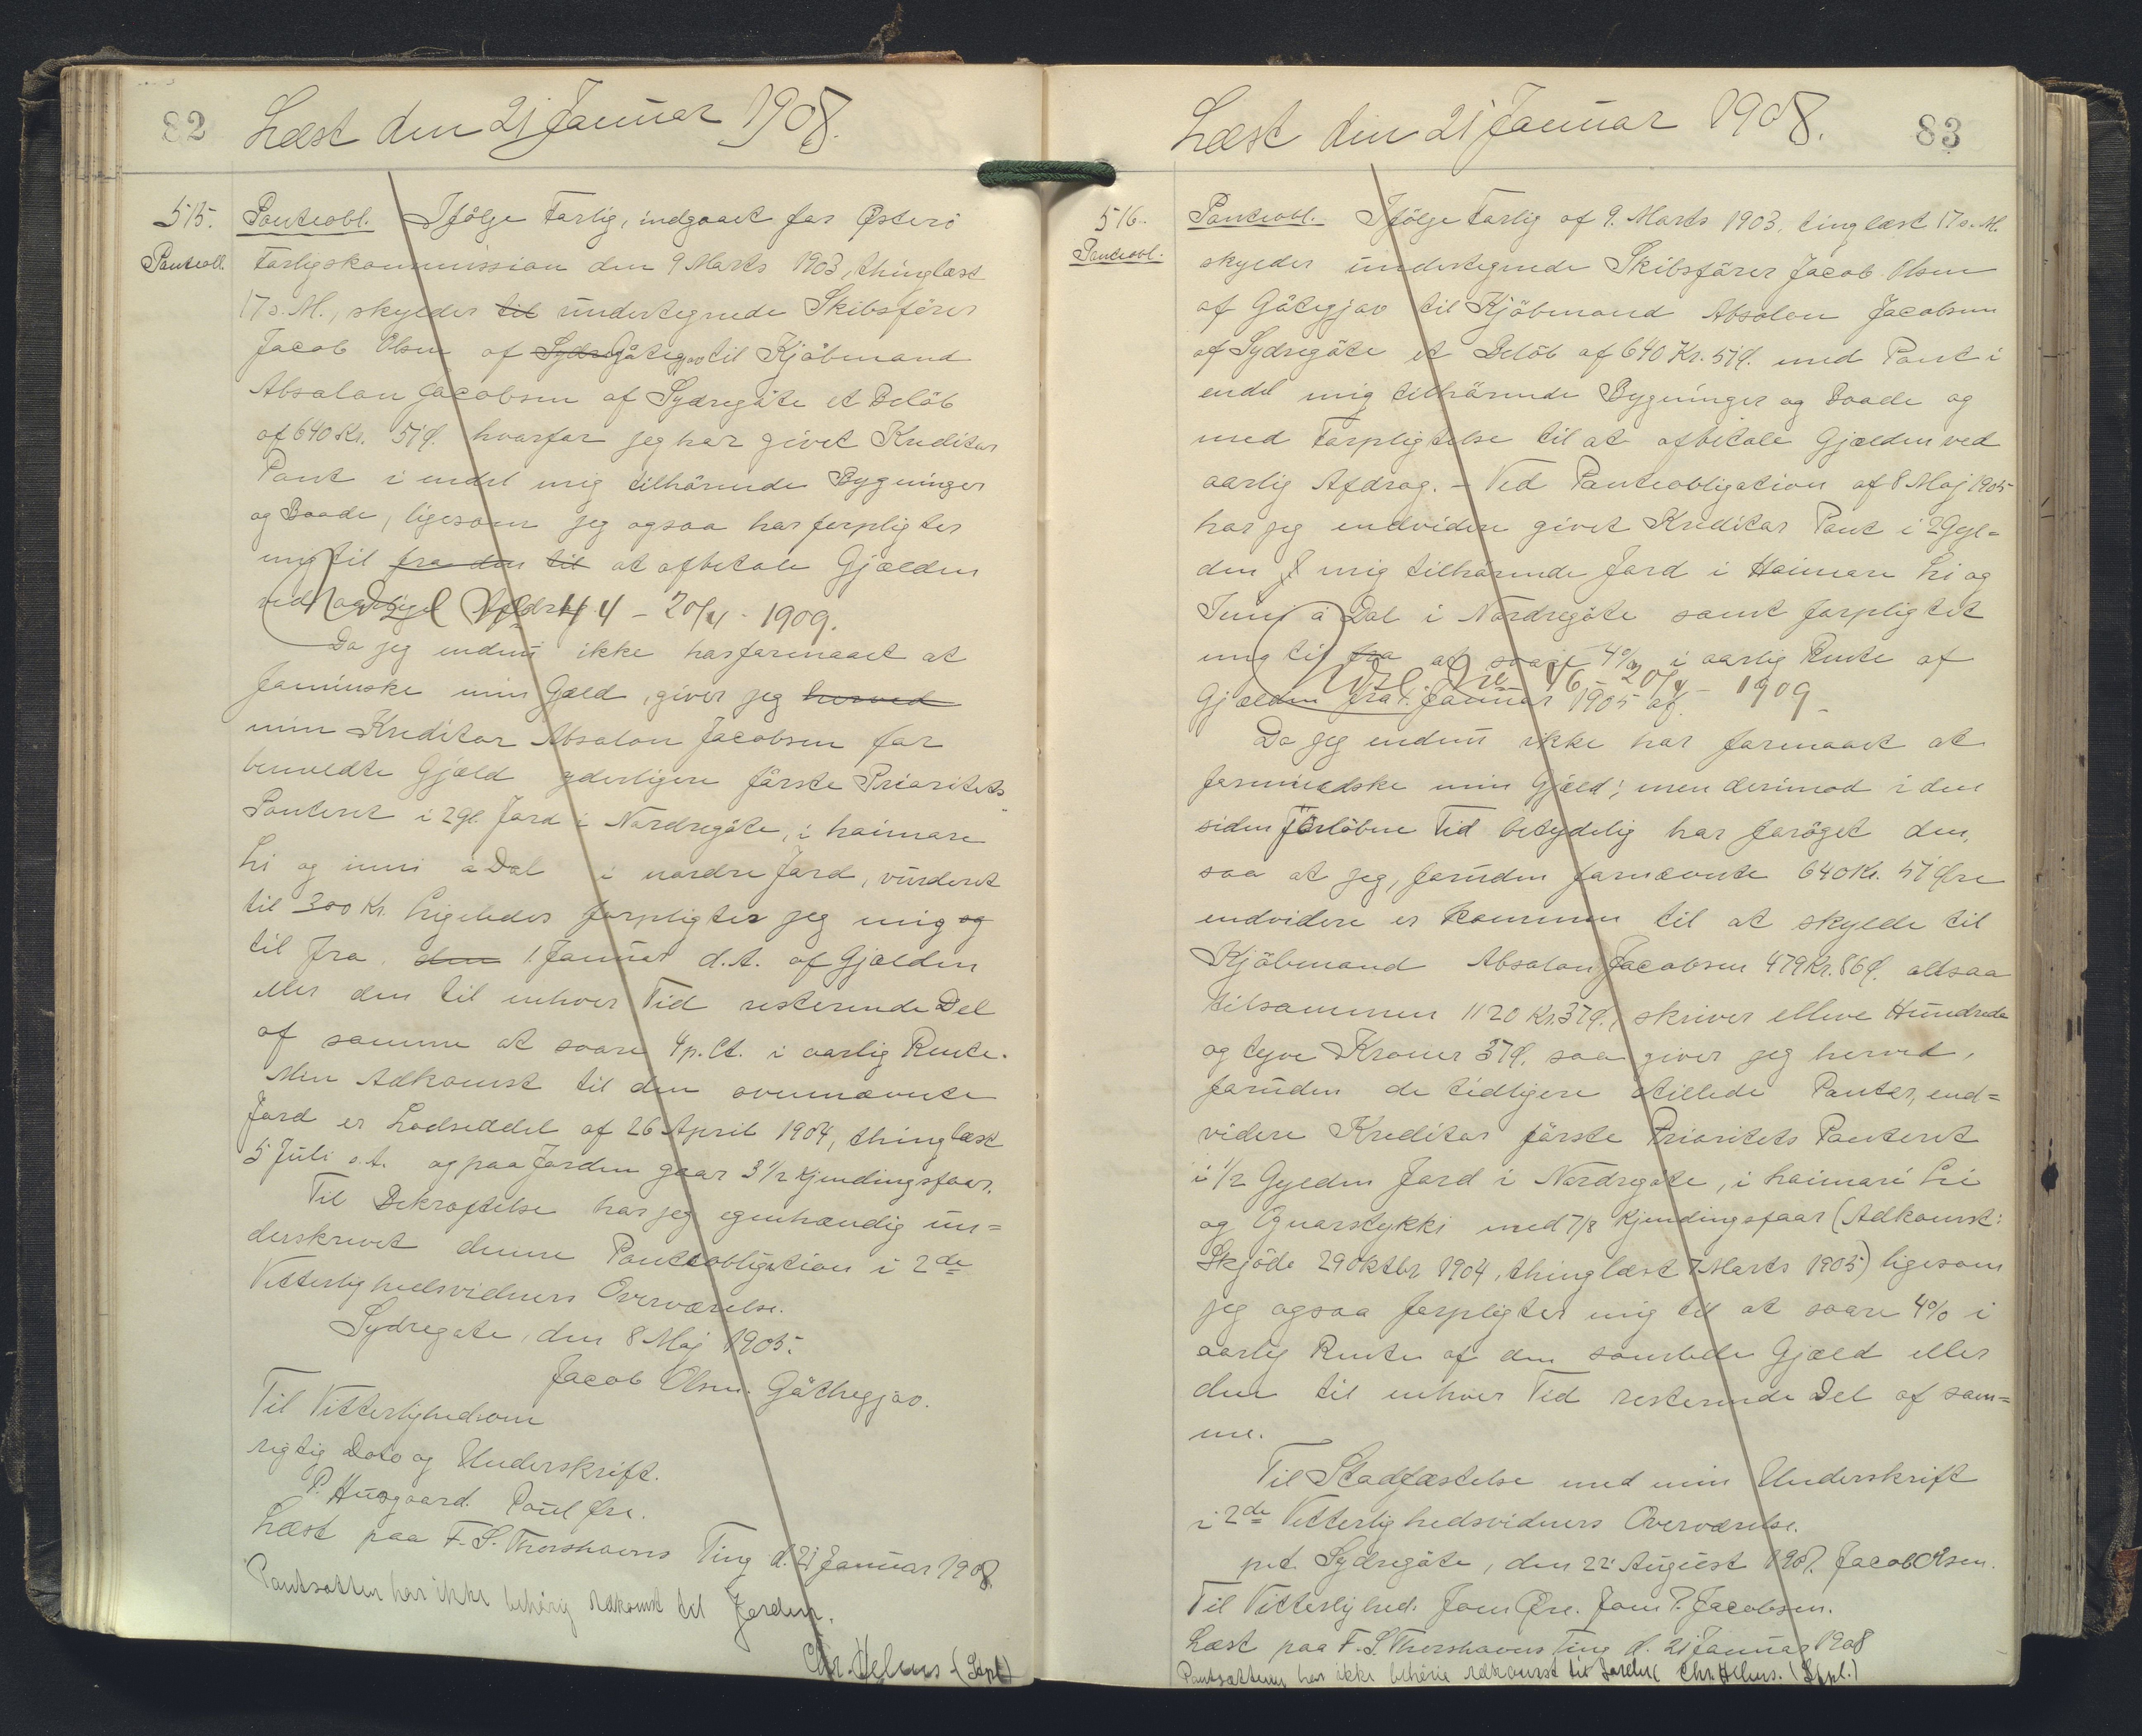 82
Læst den 21 Januar 1908.
515.
Panteobl.
Panteobl. Ifölge Forlig, indgaaet for Østerö
Forligskommission den 9 Marts 1903, thinglæst
17 s. M., skylder til undertegnede Skibsförer
Jacob Olsen af Sydregöte Götegjov til Kjöbmand
Absalon Jacobsen af Sydregöte et Belöb
af 640 Kr. 51 Ø. hvorfor jeg har givet Kreditor
Pant i endel mig tilhörende Bygninger
og Baade, ligesom jeg ogsaa har forpligtet
mig til fra den til at afbetale Gjælden
ved aarligt Afdrag.
44 - 20/4 - 1909.
Da jeg endnu ikke har formaaet at
formindske min Gæld, giver jeg herved
min Kreditor Absalon Jacobsen for
bemeldte Gjæld yderligere förste Prioritets
Panteret i 2 gl. Jord i Nordregöte, i haimare
Li og inni á Dal i nordre Jord, vurderet
til 300 Kr. Ligeledes forpligter jeg mig og
til fra den 1. Januar d. A. af Gjælden
eller den til enhver Tid resterende Del
af samme at svare 4 p. Ct. i aarlig Rente.
Min Adkomst til den ovennævnte
Jord er Lodseddel af 26 April 1904, thinglæst
5 Juli s. A. og paa Jorden gaar 3 1/2 Kjendingsfaar.
Til Bekræftelse har jeg egenhændig un=
derskrevet denne Panteobligation i 2de
Vitterlighedsvidners Overværelse.
Sydregøte, den 8 Maj 1905.
Jacob Olsen. Göthegjov.
Til Vitterlighed om
rigtig Dato og Underskrift.
P. Husgaard. Poul Øre.
Læst paa F. S. Thorshavns Ting d. 21 Januar 1908
Pantsætter har ikke behörig Adkomst til Jorden.
Chr. Helms. (Sspl)
Læst den 21 Januar 1908.
83
516.
Panteobl.
Panteobl. Ifölge Forlig af 9. Marts 1903, tinglæst 17 s. M.
skylder undertegnede Skibsförer Jacob Olsen
af Götegjov til Kjöbmand Absalon Jacobsen
af Sydregöte et Belöb af 640 Kr. 51 Ø. med Pant i
endel mig tilhörende Bygninger og Baade og
med Forpligtelse til at afbetale Gjælden ved
aarlig Afdrag. - Ved Panteobligation af 8 Maj 1905
har jeg endvidere givet Kreditor Pant i 2 Gyl=
den mig tilhörende Jord i Haimare Li og
Inni á Dal i Nordregöte samt forpligtet
mig til fra at svare 4% i aarlig Rente af
Gjælden fra 1. Januar 1905 af.
46 - 20/4 - 1909
Da jeg endnu ikke har formaaet at
formindske min Gjæld; men derimod i den
siden forlöbne Tid betydelig har foröget den,
saa at jeg, foruden fornævnte 640 Kr. 51 Øre
endvidere er kommen til at skylde til
Kjöbmand Absalon Jacobsen 479 Kr. 86 Ø. altsaa
tilsammen 1120 Kr. 37 Ø., skriver elleve Hundrede
og tyve Kroner 37 Ø. saa giver jeg herved,
foruden de tidligere stillede Panter, end=
videre Kreditor förste Prioritets Panteret
i 1/2 Gylden Jord i Nordregöte, i haimari Li
og Ognarstykki med 7/8 Kjendingsfaar (Adkomst:
Skjöde 29 Oktbr 1904, thinglæst 7 Marts 1905) ligesom
jeg ogsaa forpligter mig til at svare 4% i
aarlig Rente af den samlede Gjæld eller
den til enhver Tid resterende Del af sam=
me.
Til Stadfæstelse med min Underskrift
i 2de Vitterlighedsvidners Overværelse.
pt. Sydregöte, den 22 August 1907. Jacob Olsen.
Til Vitterlighed. Joen Øre. Joen P. Jacobsen.
Læst paa F. S. Thorshavns Ting d. 21 Januar 1908
Pantsætteren har ikke behörig Adkomst til Jorden Chr. Helms. (Sspl.)